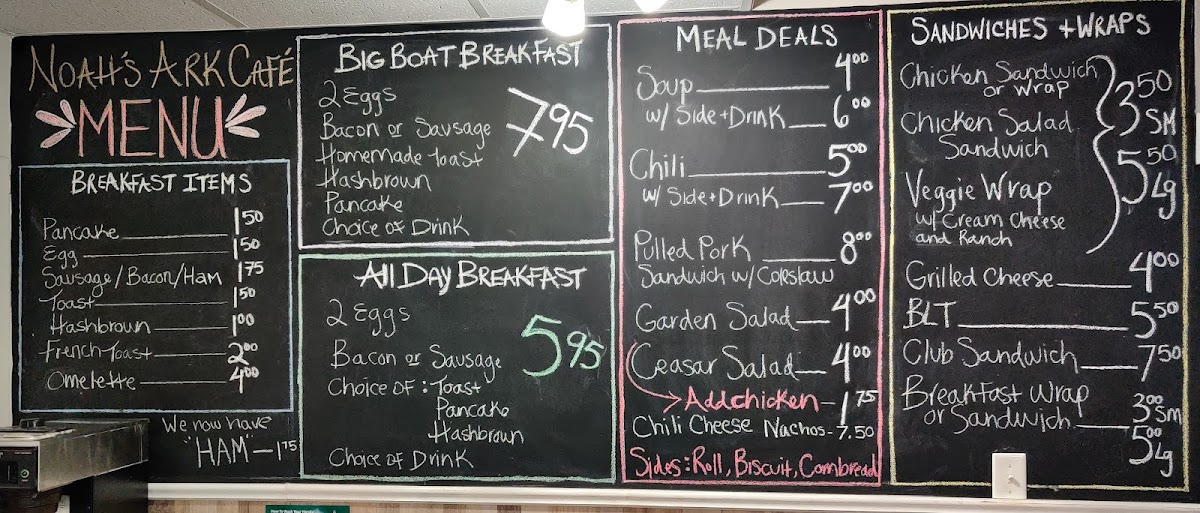 NOAH'S ARK CAFÉ
MENU
BREAKFAST ITEMS
Pancake 1 50
Egg 1 50
Sausage/Bacon/Ham 1 75
Toast 1 50
Hashbrown 1 00
French Toast 2 00
Omelette 4 00
We now have
"HAM" - 1 75
BIG BOAT BREAKFAST
2 Eggs
Bacon or Sausage
Homemade toast
Hashbrown
Pancake
Choice of Drink
7 95
All DAY BREAKFAST
2 Eggs
Bacon or Sausage
Choice of: Toast
Pancake
Hashbrown
Choice of Drink
5 95
MEAL DEALS
Soup 4 00
w/ Side + Drink 6 00
Chili 5 00
w/ Side + Drink 7 00
Pulled Pork 8 00
Sandwich w/ Corslaw
Garden Salad 4 00
Ceasar Salad 4 00
Add chicken - 1 75
Chili Cheese Nachos - 7.50
Sides: Roll, Biscuit, Cornbread
SANDWICHES + WRAPS
Chicken Sandwich
or Wrap
Chicken Salad
Sandwich
Veggie Wrap
w/ Cream Cheese
and Ranch
3 50
SM
5 50
Lg
Grilled Cheese 4 00
BLT 5 50
Club Sandwich 7 50
Breakfast Wrap
or Sandwich 3 00 Sm
5 00
Lg